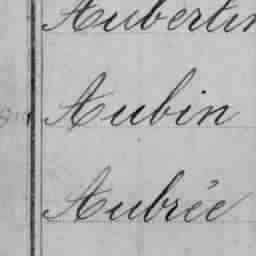 Aubertin
Aubin
Aubrée